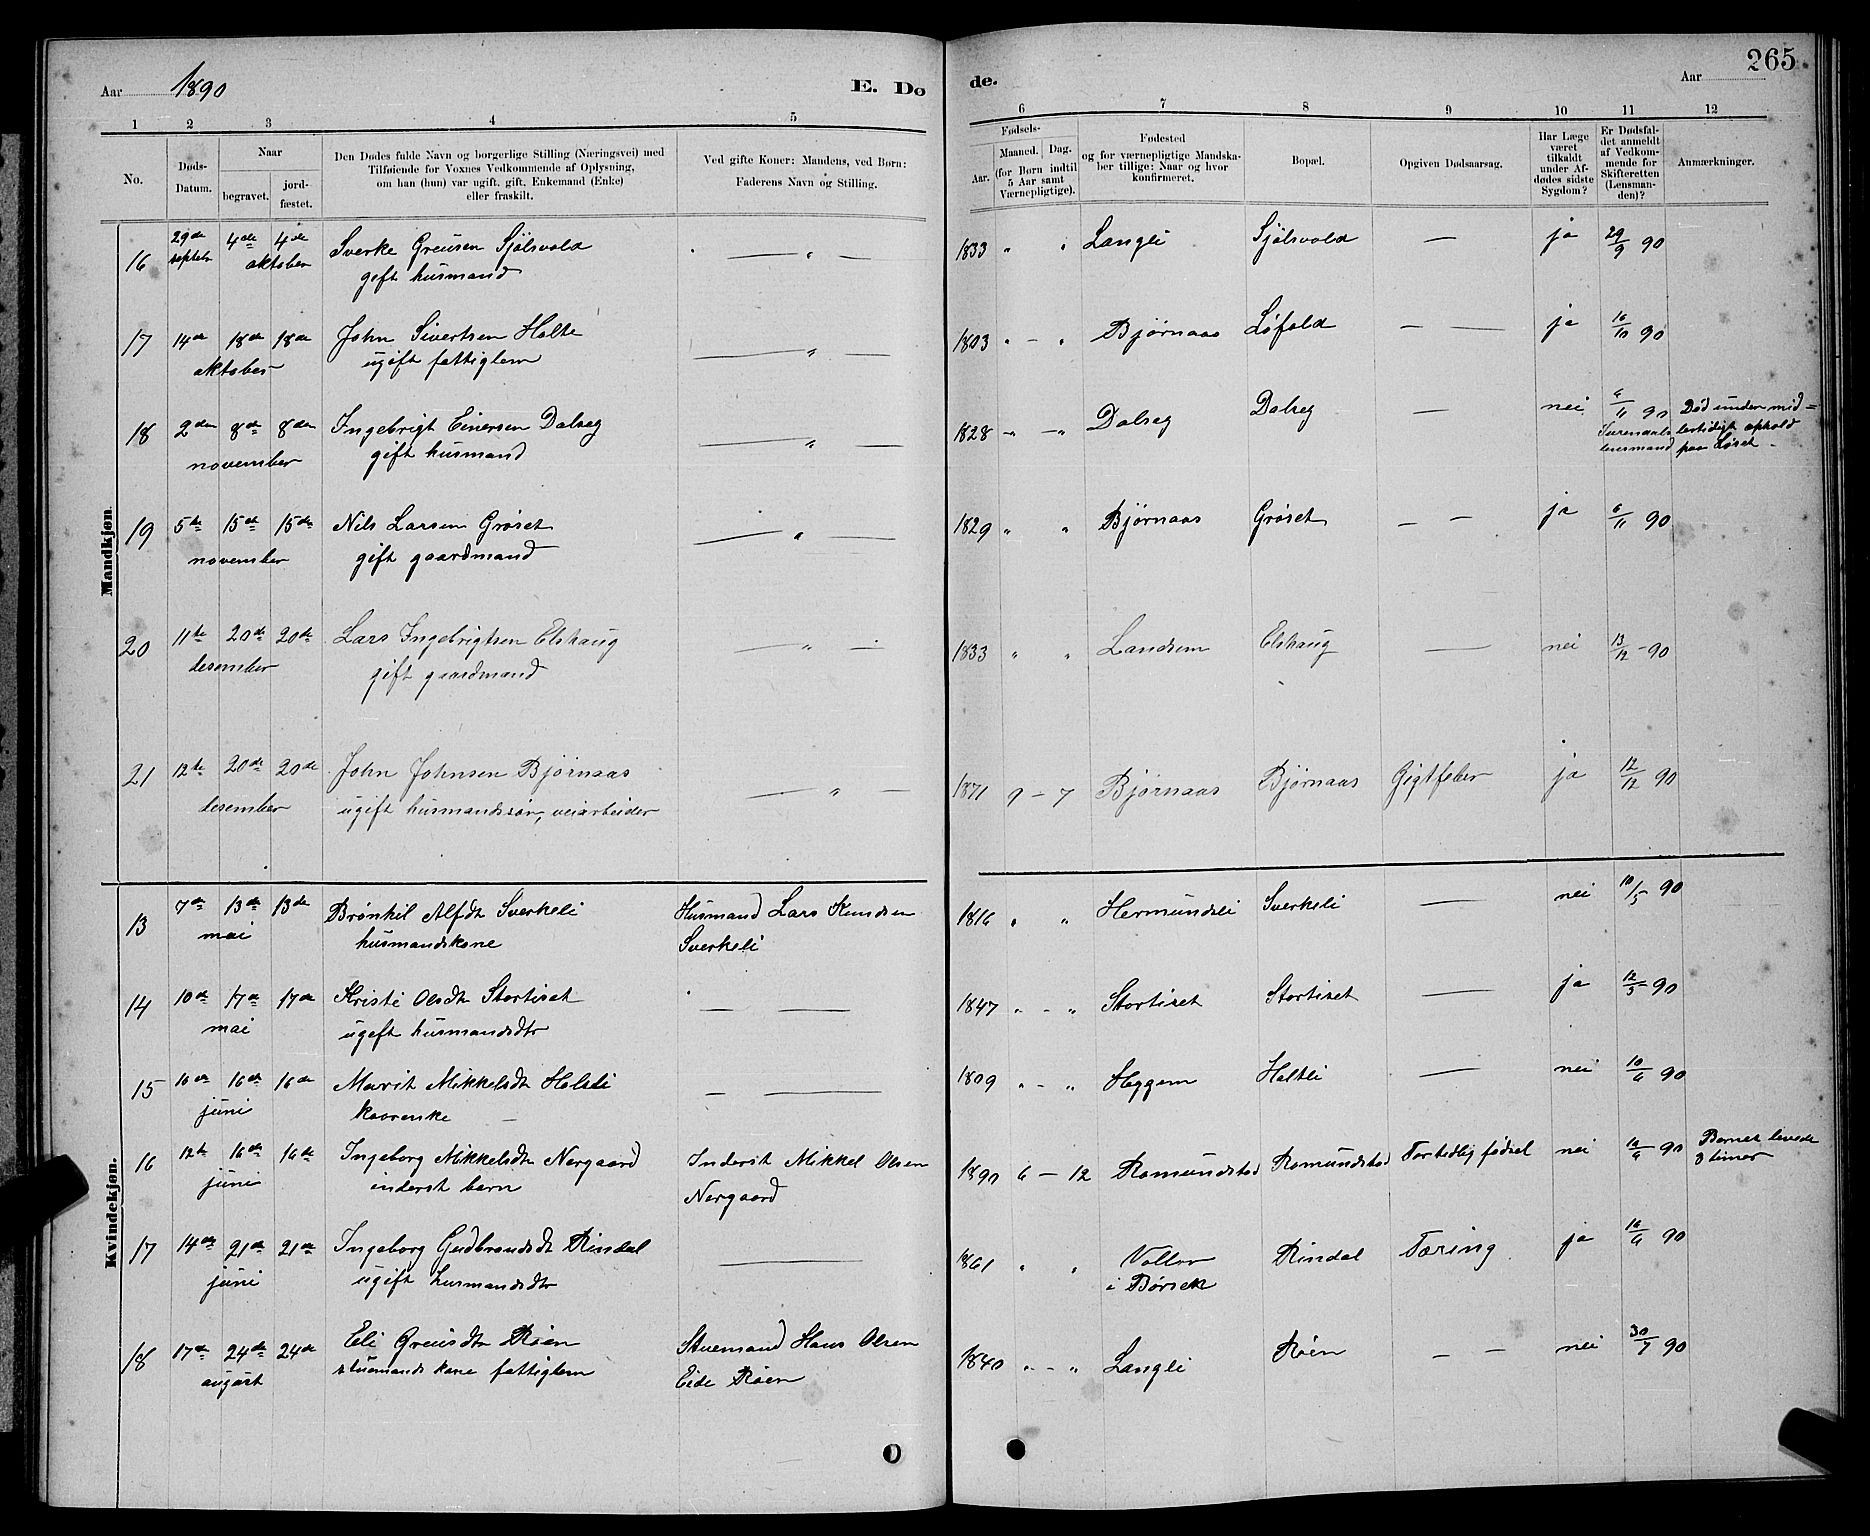 Aar 1890
E. Do
de.
Aar
265
1 2 3 4 5 6 7 8 9 10 11 12
No.
Døds-
Datum.
Naar
begravet.
jord-
fæstet.
Den Dødes fulde Navn og borgerlige Stilling (Næringsvei) med
Tilføiende for Voxnes Vedkommende af Oplysning,
om han (hun) var ugift, gift, Enkemand (Enke)
eller fraskilt.
Ved gifte Koner: Mandens, ved Børn:
Faderens Navn og Stilling.
Fødsels-
Aar.
Maaned. Dag.
(for Børn indtil
5 Aar samt
Værnepligtige).
Fødested
og for værnepligtige Mandska-
ber tillige: Naar og hvor
konfirmeret.
Bopæl.
Opgiven Dødsaarsag.
Har Læge
været
tilkaldt
under Af-
dødes sidste
Sygdom?
Er Dødsfal-
det anmeldt
af Vedkom-
mende for
Skifteretten
(Lensman-
den)?
Anmærkninger.
Mandkjøn.
16 29de septebr 4de 4de oktober Sverke Greusen Sjölsvold — " — 1833 " " Langli Sjölsvold — ja 29/9 90
gift husmand
17 14de 18de 18de oktober John Sivertsen Holte — " — 1803 " - " Bjørnaas Løfald — — ja 16/10 90
ugift fattiglem
18 2den 8de 8de november Ingebrigt Einersen Dalseg — " — 1828 " — " Dalseg Dalseg — nei 4/11 90 Død under mid=
gift husmand lertidigt ophold
lensmand paa Løset
19 5te 15de 15de november Nils Larsen Grøset — " — 1829 " " Bjørnaas Grøset — — ja 6/11 90
gift gaardmand
20 11te 20de 20de desember Lars Ingebrigtsen Elshaug — " — 1833 " " Landsem Elshaug — nei 13/12 - 90
gift gaardmand
21 12te 20de 20de desember John Johnsen Bjørnaas — " — 1871 9 - 7 Bjørnaas Bjørnaas Gigtfeber ja 12/12 90
ugift husmandssøn, veiarbeider
Kvindekjøn.
13 7de 13de 13de mai Brønhil Alfdtr Sverkeli Husmand Lars Knudsen 1816 " " Hermundsli Sverkeli — nei 10/5 90
husmandskone Sverkeli
14 10de 17de 17de mai Kristi Olsdtr Stortiset — — 1847 " - " Stortiset Stortiset — ja 12/5 90
ugift husmandsdtr
15 10de 16de 16de juni Marit Mikkelsdtr Holtli — — 1809 " - " Heggem Holtli — nei 10/6 90
kaarenke
16 12te 16de 16de juni Ingeborg Mikkelsdtr Nergaard Inderst Mikkel Olsen 1890 6 — 12 Romundstad Romundstad Fortidlig fødsel nei 14/6 90 Barnet levede
inderst barn Nergaard 8 timer
17 14de 21de 21de juni Ingeborg Gudbrandsdtr Rindal — 1861 " " Vollan Rindal Tæring ja 16/6 90
ugift husmandsdtr i Børsek
18 17de 24de 24de august Eli Greusdtr Røen Stuemand Hans Olsen 1840 " - " Langli Røen — — nei 30/7 90
stuemands kone fattiglem Eide Røen